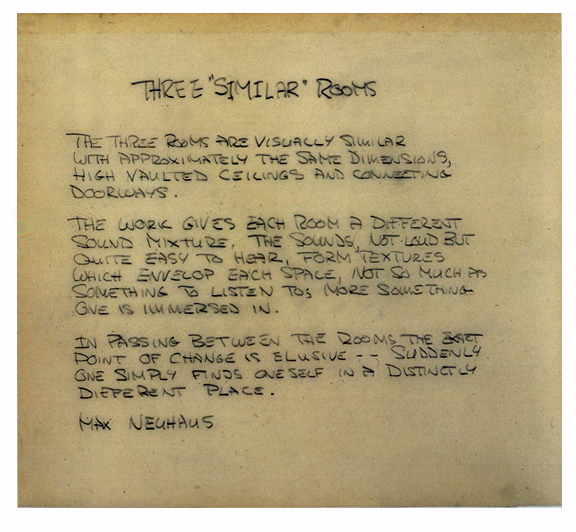 THREE "SIMILAR" ROOMS
THE THREE ROOMS ARE VISUALLY SIMILAR
WITH APPROXIMATELY THE SAME DIMENSIONS,
HIGH VAULTED CEILINGS AND CONNECTING
DOORWAYS.
THE WORK GIVES EACH ROOM A DIFFERENT
SOUND MIXTURE. THE SOUNDS, NOT LOUD BUT
QUITE EASY TO HEAR, FORM TEXTURES
WHICH ENVELOP EACH SPACE, NOT SO MUCH AS
SOMETHING TO LISTEN TO; MORE SOMETHING
ONE IS IMMERSED IN.
IN PASSING BETWEEN THE ROOMS THE EXACT
POINT OF CHANGE IS ELUSIVE -- SUDDENLY
ONE SIMPLY FINDS ONESELF IN A DISTINCTLY
DIFFERENT PLACE.
MAX NEUHAUS